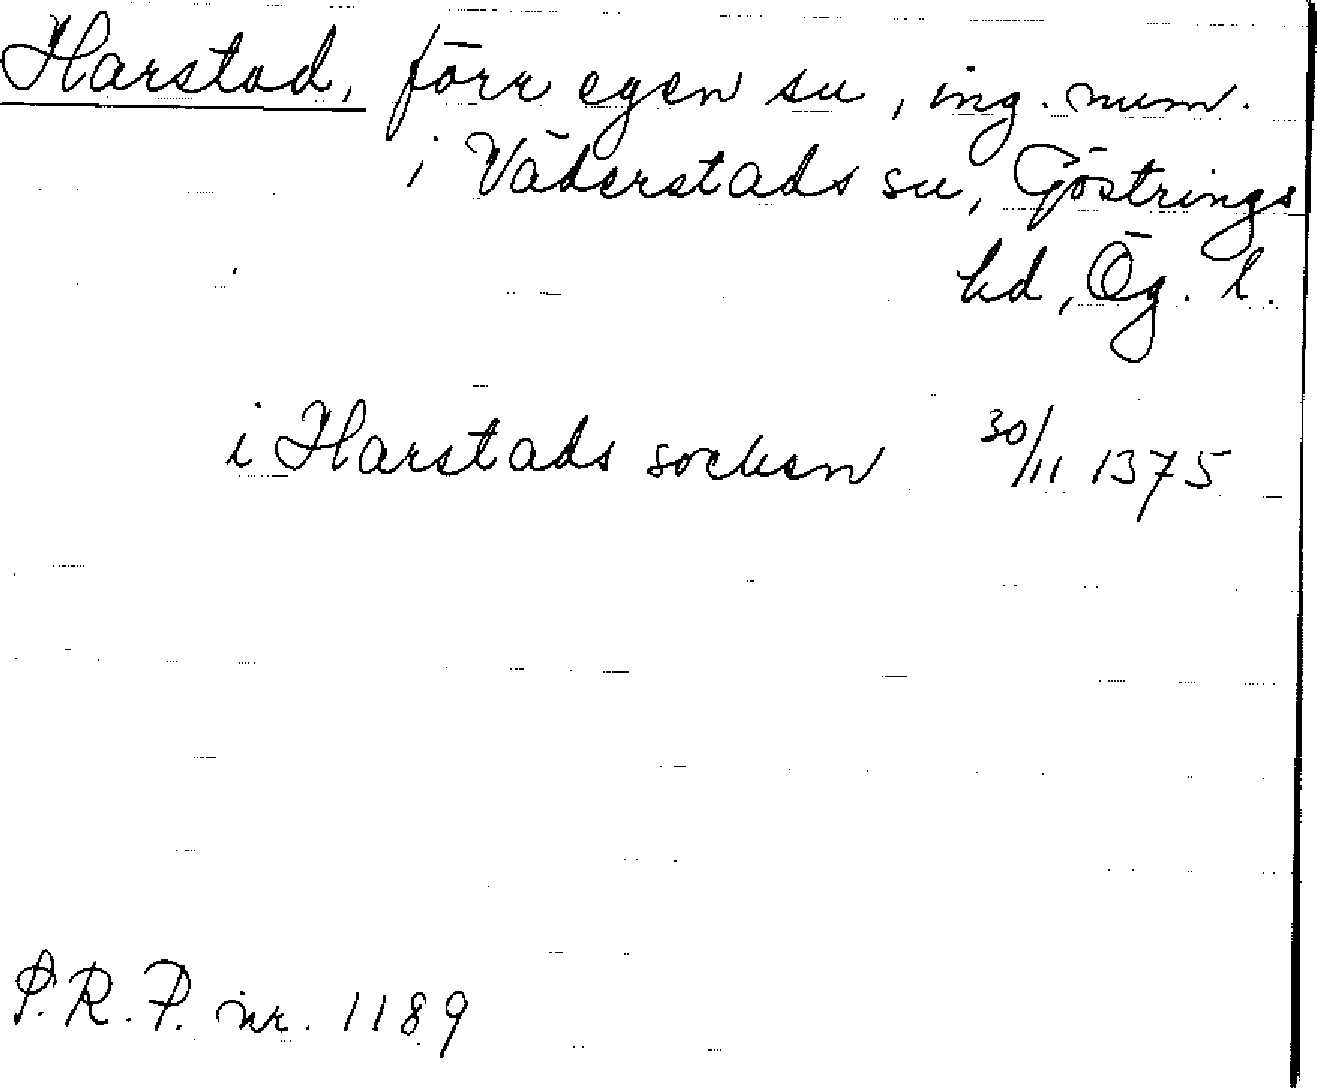 Harstad, förr egen sn, ing. num.
i Väderstads sn, Göstrings
hd, Ög. l.
i Harstads socken 30/11 1375
S.R.P. nr. 1189